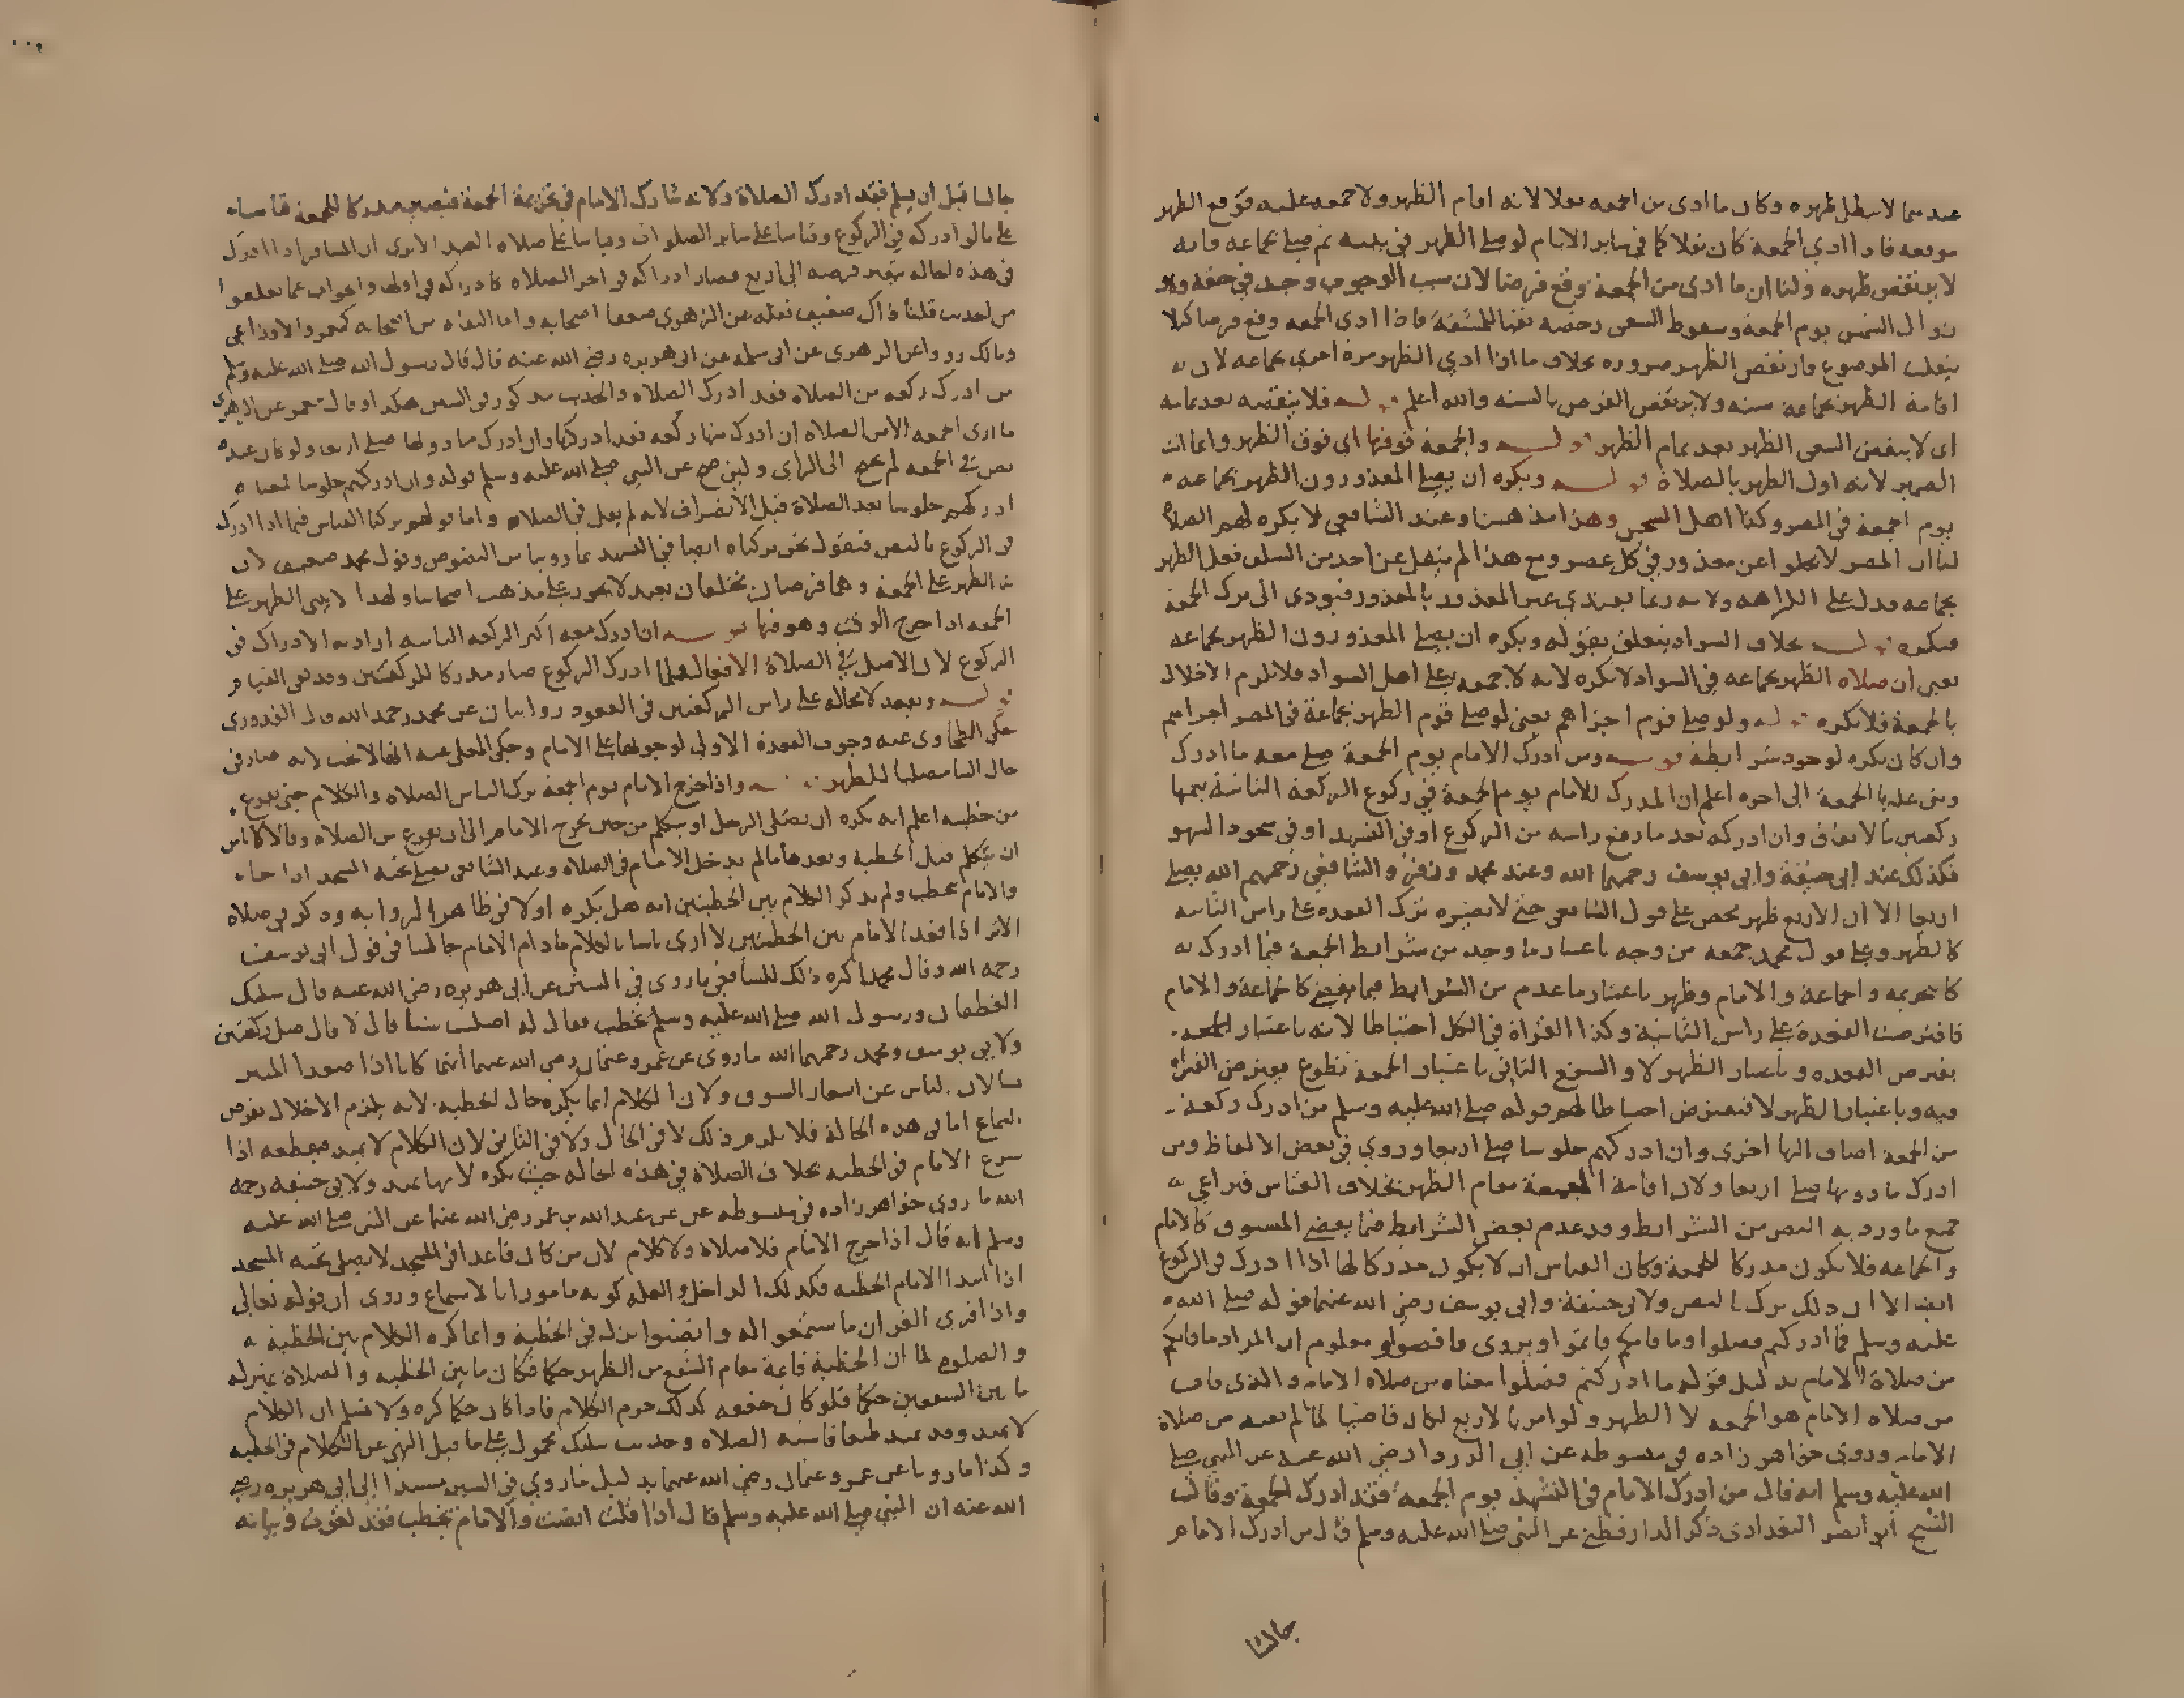 عندهما لا يبطل ظهره وكان ما ادى من الجمعة نفلا لانه اقام الظهر ولا جمعه عليه فوقع الظهر
موقعه فاذا ادي الجمعة كان نفلا كما في ساير الايام لو صلى الظهر في بيته ثم صلى بجماعه فانه
لا ينتقض ظهره ولنا ان ما ادى من الجمعة وقع فرضا لان سبب الوجوب وجد في حقه وهو
زوال الشمس يوم الجمعة وسقوط السعى رخصة نفيا للمشقة فاذا ادى الجمعه وقع فرضا كيلا
ينقلب الموضوع فانتقض الظهر ضروره بخلاف ما اذا ادي الظهر مرة اخرى بجماعه لان
اقامة الظهر بجماعة سنه ولا ينتقض الفرض بالسنه والله أعلم قوله فلا ينقضه بعد تمامه
اى لا ينقض السعى الظهر بعد تمام الظهر قوله والجمعة فوقها اى فوق الظهر وانما انث
الضمير لانه اول الظهر بالصلاة قوله ويكره ان يصلي المعذورون الظهر بجماعه
يوم الجمعة في المصر وكذا اهل السجن وهذا مذهبنا وعند الشافعي لا يكره لهم الصلاة
لنا ان المصر لا يخلوا عن معذور في كل عصر ومع هذا لم ينقل عن احد من السلف فعل الظهر
بجماعه فدل على الكراهه ولانه ربما يقتدي غير المعذور بالمعذور فيودى الى ترك الجمعة
فيكره قوله بخلاف السواد يتعلق بقوله ويكره ان يصلي المعذورون الظهر بجماعه
يعني ان صلاه الظهر بجماعه في السواد لا تكره لانه لا جمعه على اهل السواد فلا يلزم الاخلال
بالجمعة فلا يكره قوله ولو صلى قوم اجزاهم يعني لو صلى قوم الظهر بجماعة في المصر اجزاهم
وان كان يكره لوجود شرايطه قوله ومن ادرك الامام يوم الجمعة صلى معه ما ادرك
وبنى عليها الجمعة الى اخره اعلم ان المدرك للامام يوم الجمعة في ركوع الركعة الثانية يتمها
ركعتين بالاتفاق وان ادركه بعد ما رفع راسه من الركوع او في التشهد او في سجود السهو
فكذلك عند ابي حنيفة وابي يوسف رحمهما الله وعند محمد وزفر والشافعي رحمهم الله يصلي
اربعا الا ان الاربع ظهر محض على قول الشافعي حتى لا يضره ترك القعده على راس الثانيه
كالظهر وعلى قول محمد جمعه من وجه باعتبار ما وجد من شرايط الجمعة فيما ادرك
كالتحريمه والجماعة والامام وظهر باعتبار ما عدم من الشرايط فيما يقضى كالجماعة والامام
فافترضت القعدة على راس الثانية وكذا القراة في الكل احتياطا لانه باعتبار الجمعه
يفترض القعده وباعتبار الظهر لا والشفع الثاني باعتبار الجمعة تطوع فيفترض القراة
فيه وباعتبار الظهر لا فتفترض احتياطا لهم قوله صلى الله عليه وسلم من ادرك ركعة
من الجمعة اضاف اليها اخرى وان ادركهم جلوسا صلى اربعا وروي في بعض الالفاظ ومن
ادرك ما دونها صلى اربعا ولان اقامة الجمعة مقام الظهر بخلاف القياس فيراعي
جميع ما ورد به النص من الشرايط وقد عدم بعض الشرايط فيما يقضي المسبوق كالامام
والجماعه فلا يكون مدركا للجمعة وكان القياس ان لا يكون مدركا لها اذا ادرك في الركوع
ايضا الا ان ذلك ترك بالنص ولابي حنيفة وابي يوسف رضي الله عنهما قوله صلى الله
عليه وسلم فما ادركتم فصلوا وما فاتكم فاتموا ويروى فاقضوا ومعلوم ان المراد ما فاتكم
من صلاة الامام بدليل قوله ما ادركتم فصلوا معناه من صلاه الامام والذي فات
من صلاه الامام هو الجمعه لا الظهر ولو امر بالاربع لكان قاضيا لما لم يفته من صلاة
الامام وروى خواهر زاده في مبسوطه عن ابي الدردا رضي الله عنه عن النبي صلى
الله عليه وسلم انه قال من ادرك الامام في التشهد يوم الجمعه فقد ادرك الجمعة وقال
الشيخ ابو نصر البغدادى ذكر الدارقطني عن النبي صلى الله عليه وسلم قال من ادرك الامام
جالسا
جالسا قبل ان يسلم فقد ادرك الصلاة ولانه شارك الامام في تحريمة الجمعة فيصير مدركا للجمعة قياسا
على ما لو ادركه في الركوع وقياسا على ساير الصلوات وقياسا على صلاه العيد الا ترى ان المسافر اذا ادرك
في هذه الحاله يتغير فرضه الى اربع فصار ادراكه في اخر الصلاه كادراكه في اولها والجواب عما تعلقوا
من الحديث قلنا ذاك ضعيف نقله عن الزهري ضعفا اصحابه واما الثقاه من اصحابه كمعمر والاوزاعي
ومالك رووا عن الزهرى عن ابى سلمه عن ابى هريره رضي الله عنه قال قال رسول الله صلى الله عليه وسلم
من ادرك ركعه من الصلاه فقد ادرك الصلاه والحديث مذكور في السنن هكذا وقال معمر عن الزهرى
ما ارى الجمعه الا من الصلاه ان ادرك منها ركعه فقد ادركها وان ادرك ما دونها صلى اربعا ولو كان عنده
نص في الجمعه لم يحتج الى الراي ولين صح عن النبي صلى الله عليه وسلم قوله وان ادركتهم جلوسا فمعناه
ادركهم جلوسا بعد الصلاة قبل الانصراف لانه لم يقل في الصلاه واما قولهم تركنا القياس فيما اذا ادرك
في الركوع بالنص فنقول نحن تركناه ايضا في التشهد بما روينا من النصوص وقول محمد ضعيف لان
بنا الظهر على الجمعة وهما فرضان مختلفان بعيد لا يجوز على مذهب اصحابنا ولهذا لا يبنى الظهر على
الجمعه اذا خرج الوقت وهو فيها قوله ان ادرك معه اكثر الركعه الثانيه اراد به الادراك في
الركوع لان الاصل في الصلاة الافعال فلما ادرك الركوع صار مدركا للركعتين وقد بقي القيام
قوله ويقعد لا محاله على راس الركعتين في القعود روايتان عن محمد رحمه الله قال القدورى
حكى الطحاوي عنه وجوب القعدة الاولي لوجوبها على الامام وحكى المعلى عنه انها لا تجب لانه صار في
حال البنا مصليا للظهر قوله واذا خرج الامام يوم الجمعة ترك الناس الصلاه والكلام حتى يفرغ
من خطبته اعلم انه يكره ان يصلي الرجل او يتكلم من حين يخرج الامام الى ان يفرغ من الصلاه وقالا لا باس
ان يتكلم قبل الخطبة وبعدها ما لم يدخل الامام في الصلاه وعند الشافعي يصلي تحية المسجد اذا جا
والامام يخطب ولم يذكر الكلام بين الخطبتين انه هل يكره اولا في ظاهر الروايه وذكر في صلاه
الاثر اذا قعد الامام بين الخطبتين لا ارى باسا بالكلام ما دام الامام جالسا في قول ابي يوسف
رحمه الله وقال محمد اكره ذلك للشافعي ما روى في السنن عن ابي هريره رضى الله عنه قال سليك
الغطفاني ورسول الله صلى الله عليه وسلم يخطب فقال له اصليت شيا قال لا قال صل ركعتين
ولابي يوسف ومحمد رحمهما الله ما روى عن عمر وعثمان رضي الله عنهما انهما كانا اذا صعدا المنبر
يسالان الناس عن اسعار السوق ولان الكلام انما يكره حال الخطبة لانه يلزم الاخلال بفرض
السماع اما في هذه الحالة فلا يلزم ذلك لا في الحال ولا في الثاني لان الكلام لا يمتد فيقطعه اذا
شرع الامام في الخطبه بخلاف الصلاة في هذه الحاله حيث يكره لانها تمتد ولابي حنيفه رحمه
الله ما روى خواهر زاده في مبسوطه عن عبد الله بن عمر رضى الله عنهما عن النبي صلى الله عليه
وسلم انه قال اذا خرج الامام فلا صلاة ولا كلام لان من كان قاعدا في المسجد لا يصلي تحية المسجد
اذا ابتدا الامام الخطبه فكذلك الداخل والعله كونه مامورا بالاستماع وروى ان قوله تعالى
واذا قرى القران فاستمعوا له وانصتوا نزل في الخطبة وانما كره الكلام بين الخطبة
والصلوة لما ان الخطبة قايمة مقام الشفع من الظهر حكما فكان ما بين الخطبه والصلاة بمنزله
ما بين الشفعين حكما فلو كان حقيقه كذلك حرم الكلام فاذا كان حكما كره ولا نسلم ان الكلام
لا يمتد وقد يمتد طبعا فاشبه الصلاه وحديث سليك محمول على ما قبل النهي عن الكلام في الخطبه
وكذا ما رويا عن عمر وعثمان رضي الله عنهما بدليل ما روي في السنن مسندا الى ابي هريره رضي
الله عنه ان النبي صلى الله عليه وسلم قال اذا قلت انصت والامام يخطب فقد لغوت وبيانه